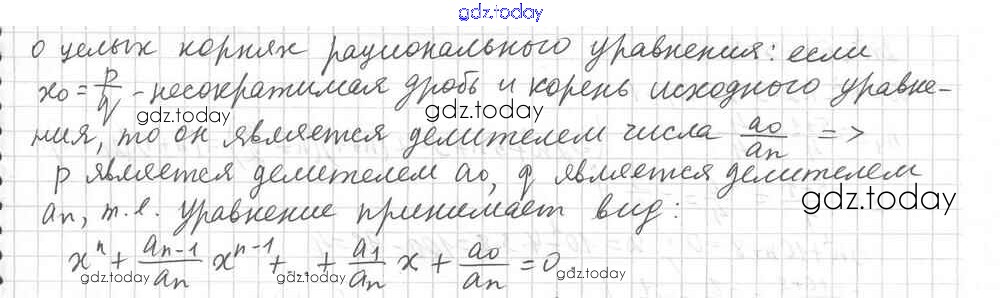 gdz.today
о целых корнях рационального уравнения: если
x₀ = p/q - несократимая дробь и корень исходного уравне-
gdz.today gdz.today
ния, то он является делителем числа a₀/aₙ =>
p является делителем a₀, q является делителем
gdz.today
aₙ, т.е. уравнение принимает вид:
xⁿ + aₙ₋₁/aₙ xⁿ⁻¹ + ... + a₁/aₙ x + a₀/aₙ = 0
gdz.today gdz.today gdz.today